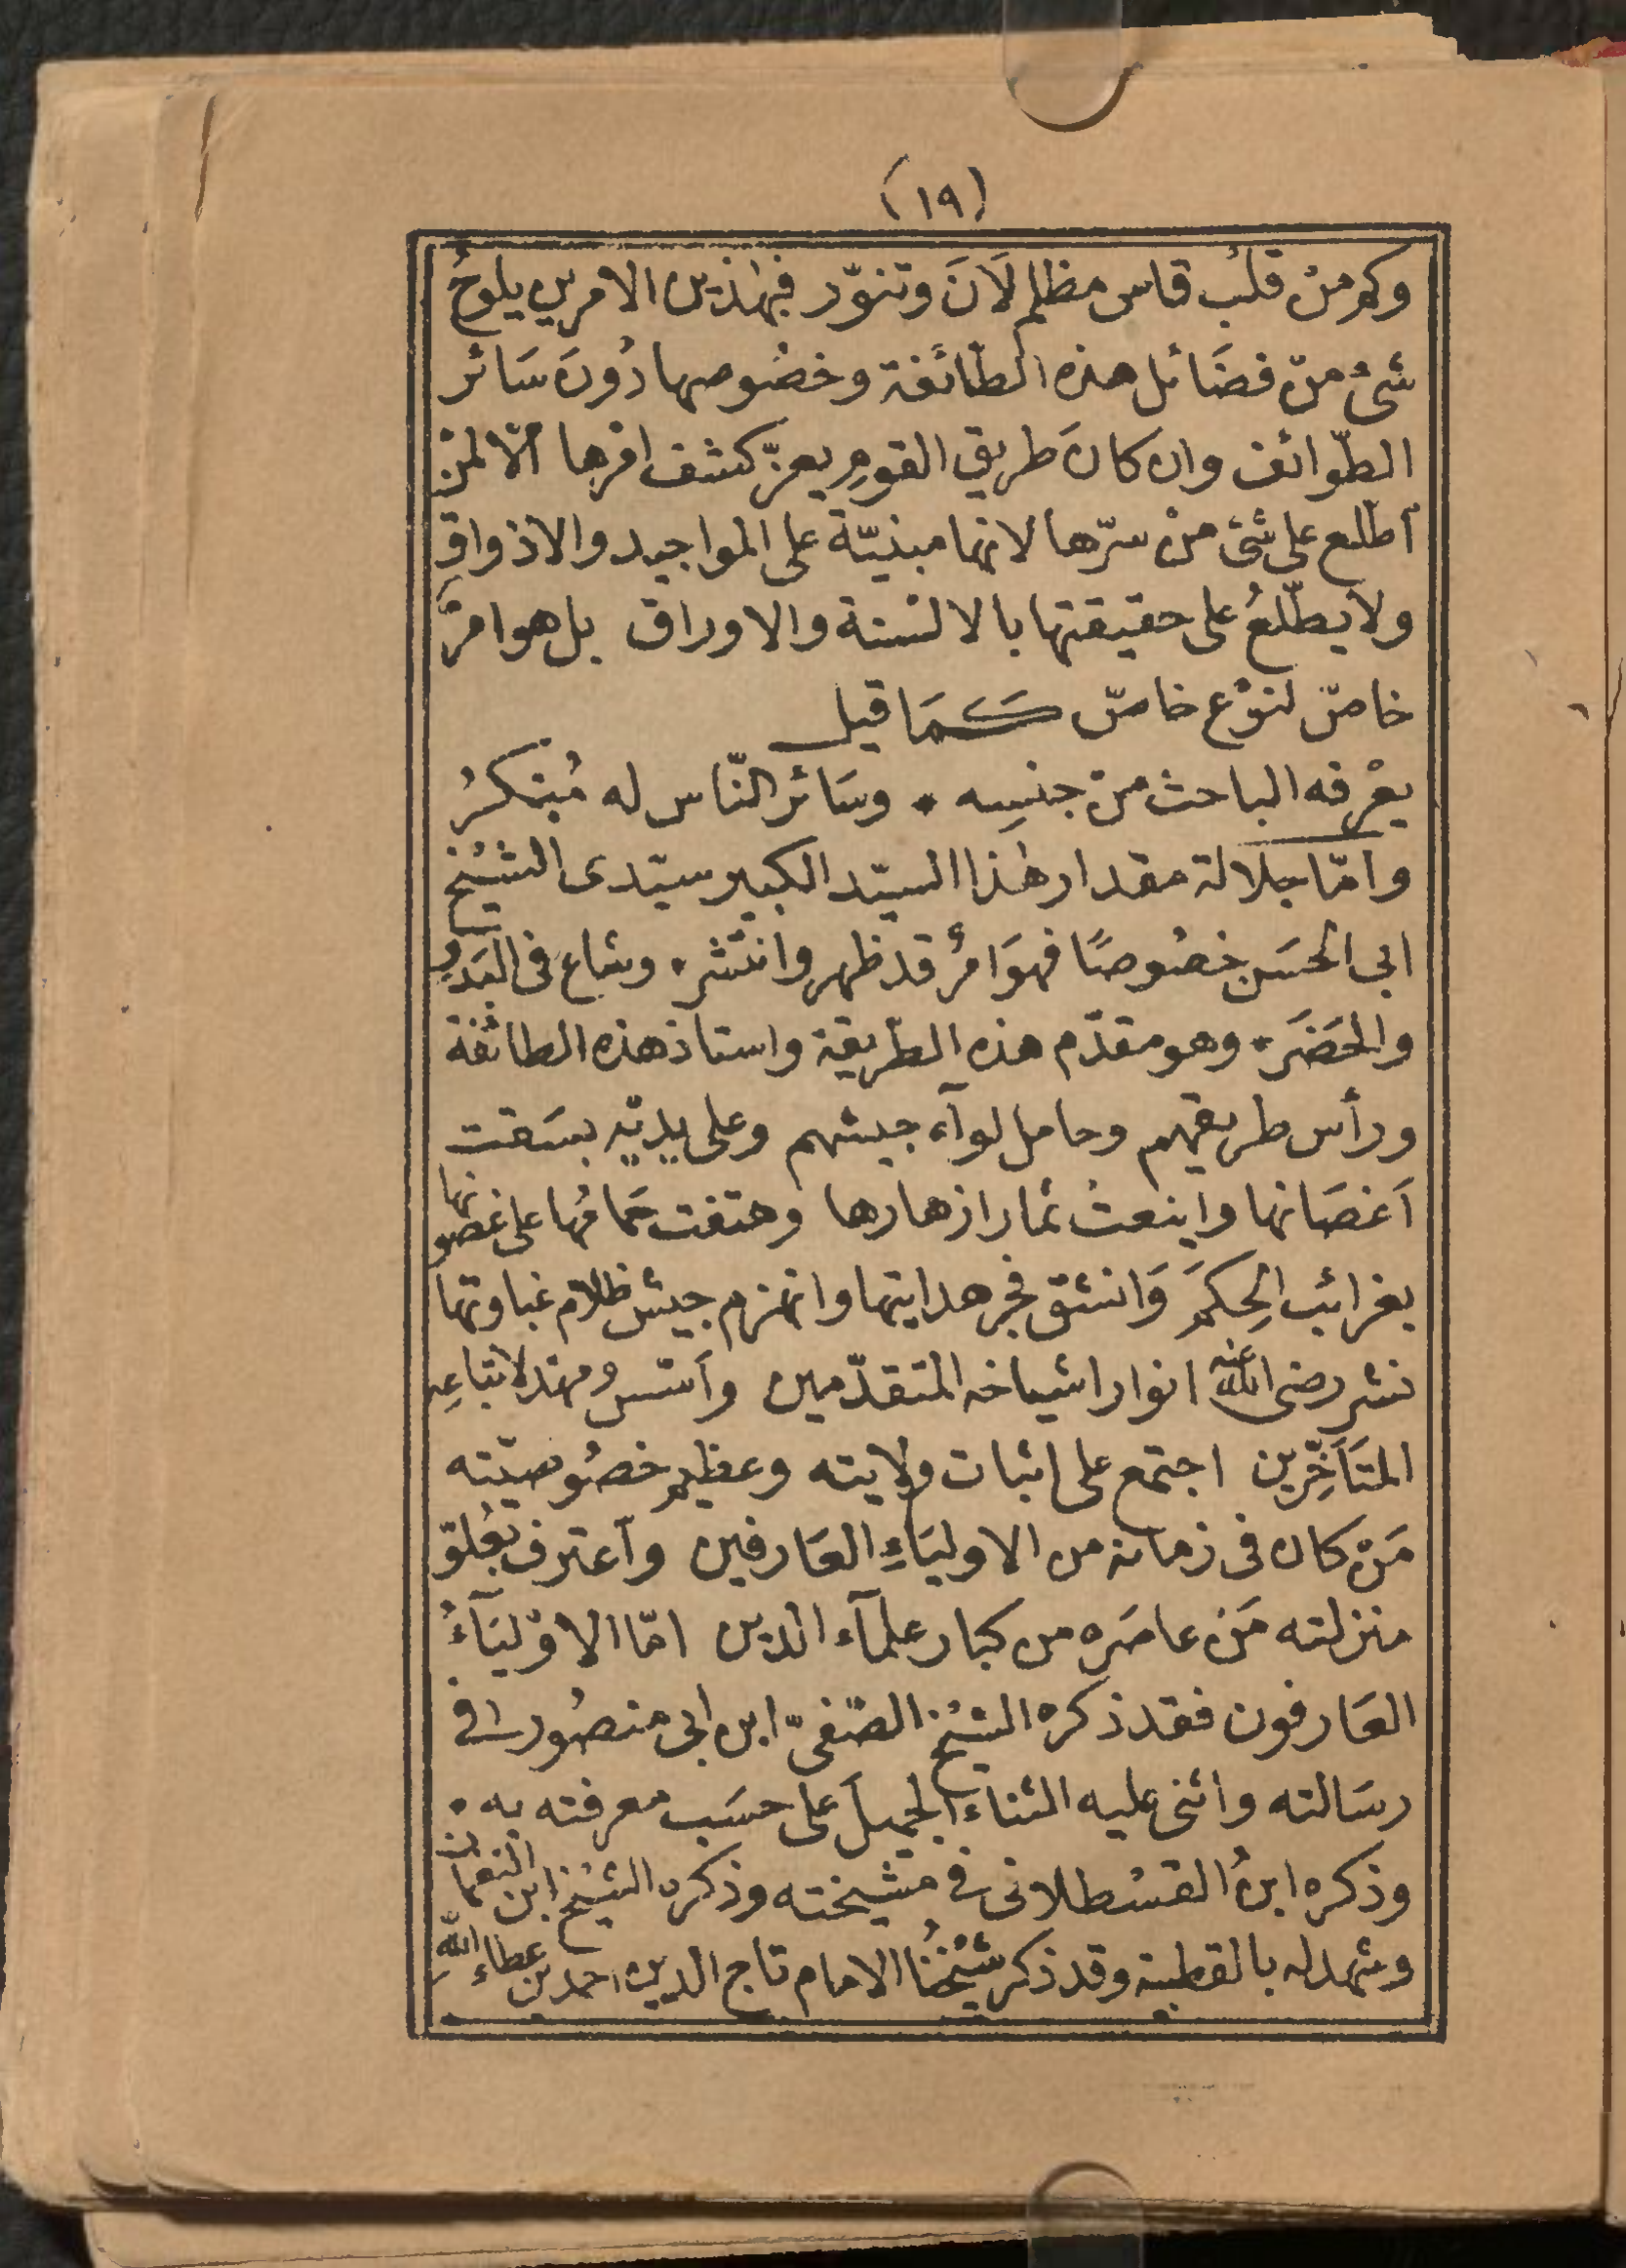 (١٩)
وكم منْ قلبٍ قاس مظلم لَانَ وتنوّر فبهٰذين الامرين يلوحُ
شئ منْ فضَائل هذه الطّائفة وخصُوصها دُونَ سَائر
الطّوائف وان كانَ طريق القومِ يعزّ كشف امرها الّا لمنْ
اطّلع على شئ منْ سرّها لانها مبنيّة على المواجيد والاذواق
ولا يطّلعُ على حقيقتها بالالسْنة والاوراق بل هو امرٌ
خاصّ لنوْع خاصّ كَمَا قيل
يعْرفه الباحث منْ جنسِه * وسَائر النّاس له مُنكرُ
وامّا جلالة مقدار هٰذا السيّد الكبير سيّدى الشيْخ
ابي الحسَن خصُوصًا فهوَ امْرٌ قد ظهر وانتشر * وشاع فى البَدْوِ
والحَضَر * وهو مقدّم هذه الطّريقة واستاذ هذه الطائفة
ورأس طريقهم وحامل لوآء جيشهم وعلى يديْه بسَقت
اَغصَانها واينعتْ ثمار ازهارها وهتفت حَمائمُها على غصونها
بغرائب الحِكَم وَانشقّ فجر هدايتها وانهزم جيش ظلام غباوتها
نشر رضى الله عنه انوار اشياخه المتقدّمين وأسّس ومهد لاتباعِه
المتَأخِّرين اجتمع على اثبات ولايته وعظيم خصُوصيّته
مَنْ كان فى زمانه من الاوليَاءِ العَارفين وآعترف بعُلوّ
منزلته مَنْ عاصَره من كبار علمآء الدين امّا الاوْليَآءُ
العَارفون فقد ذكره الشيْخ الصّفىّ ابن ابى منصُور فى
رسَالته واثنى عليه الثناءَ الجميلَ على حسَب معرفته به *
وذكره ابنُ القسْطلانى فى مشيخته وذكره الشيْخ ابن النعْمان
وشهد له بالقطبية وقد ذكر شيْخنُا الامام تاج الدين احمد بن عطاء اللهِ